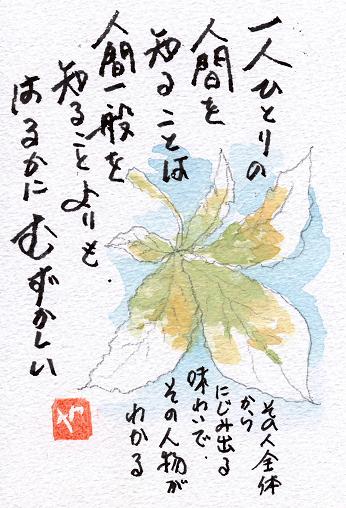 一人ひとりの
人間を
知ることは
人間一般を
知ることよりも
はるかにむずかしい
その人全体
から
にじみ出る
味わいで
その人物が
わかる